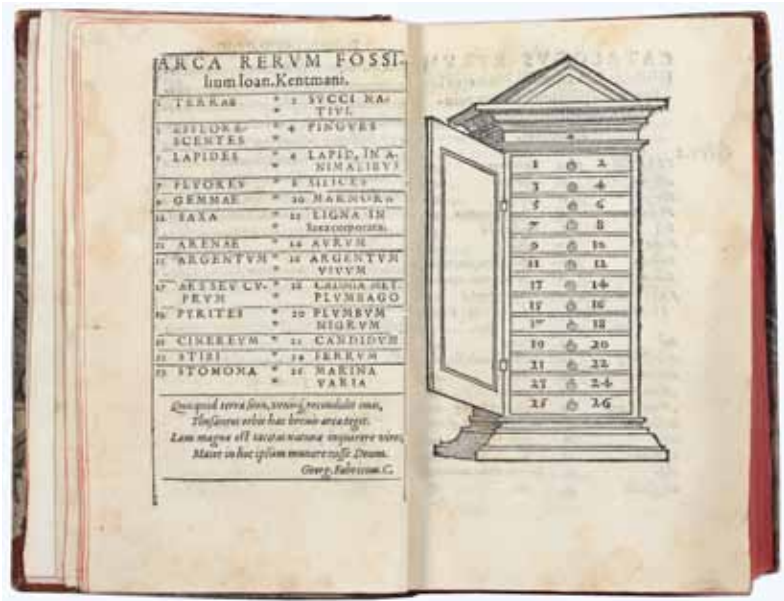 ARCA RERVM FOSSI-
lium Ioan. Kentmani.
1 TERRAE * 2 SVCCI NA-
* TIVI.
3 EFFLORE- * 4 PINGVES
SCENTES *
5 LAPIDES * 6 LAPID, IN A-
* NIMALIBVS
7 FLVORES * 8 SILICES
9 GEMMAE * 10 MARMORA
11 SAXA * 12 LIGNA IN
* saxa corporata.
13 ARENAE * 14 AVRVM
15 ARGENTVM * 16 ARGENTVM
* VIVVM
17 AES SEV CV- * 18 CADMIA MET.
PRVM * PLVMBAGO
19 PYRITES * 20 PLVMBVM
* NIGRVM
21 CINEREVM * 22 CANDIDVM
23 STIBI * 24 FERRVM
25 STOMOMA * 26 MARINA
VARIA
Quicquid terra sinu, recondidit imis,
Thesauros orbis hæc brevis arca tegit.
Laus magna est tacitas naturæ inquirere vires,
Maior in hoc ipsum munere nosse Deum.
Georg. Fabricius. C.
1 2
3 4
5 6
7 8
9 10
11 12
13 14
15 16
17 18
19 20
21 22
23 24
25 26